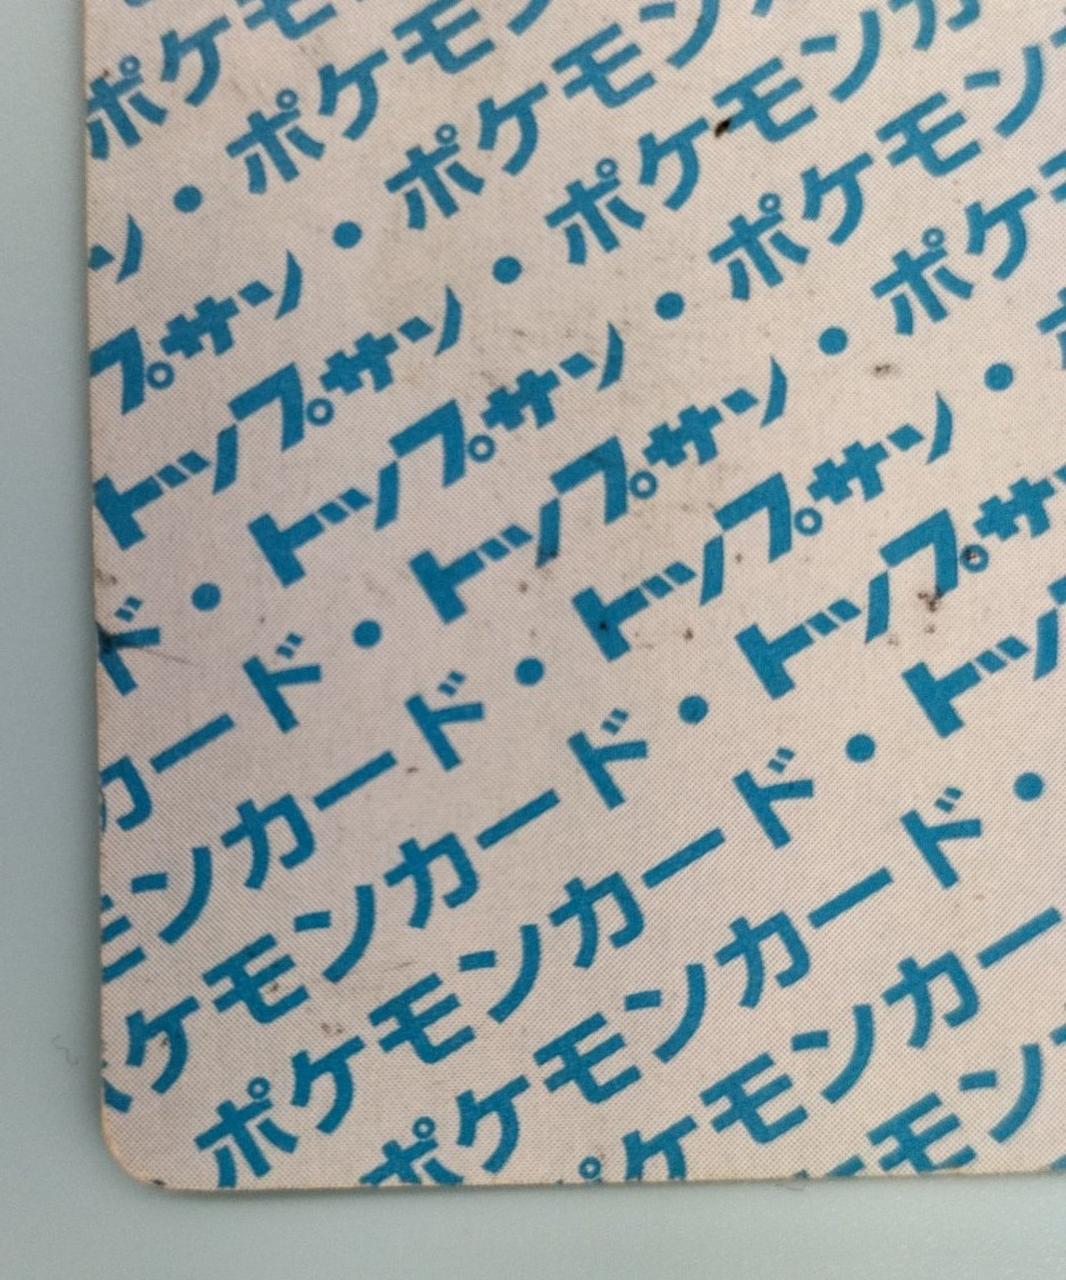 ポケモ
ン・ポケモン
プサン・ポケモン
トップサン・ポケモンカ
ド・トップサン・ポケモン
カード・トップサン・ポケ
モンカード・トップサン・
ケモンカード・トップサ
ポケモンカード・トップ
ポケモンカード・
ケモンカー
モン